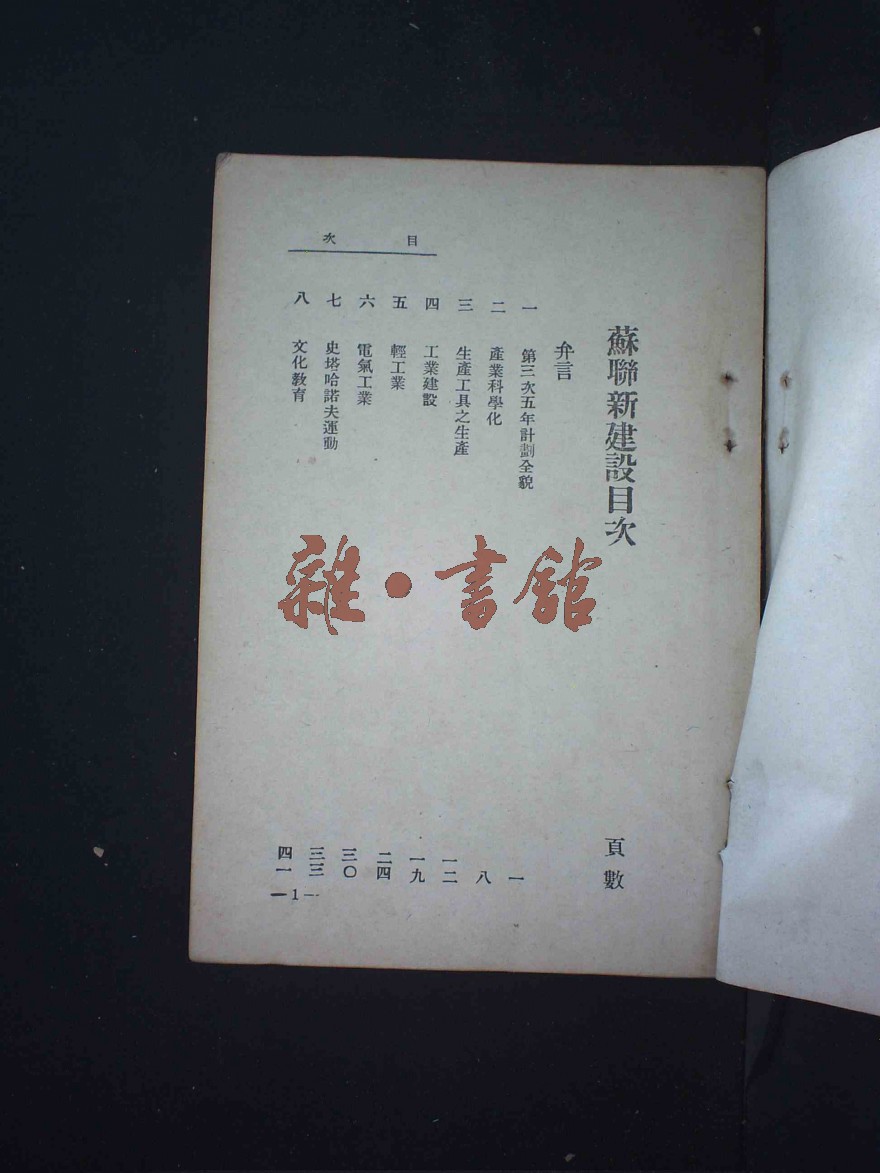 蘇聯新建設目次
頁數
弁言
一 第三次五年計劃全貌 一
二 產業科學化 八
三 生產工具之生產 一二
四 工業建設 一九
五 輕工業 二四
六 電氣工業 三〇
七 史塔哈諾夫運動 三三
八 文化教育 四一
目次
—1—
雜·書館